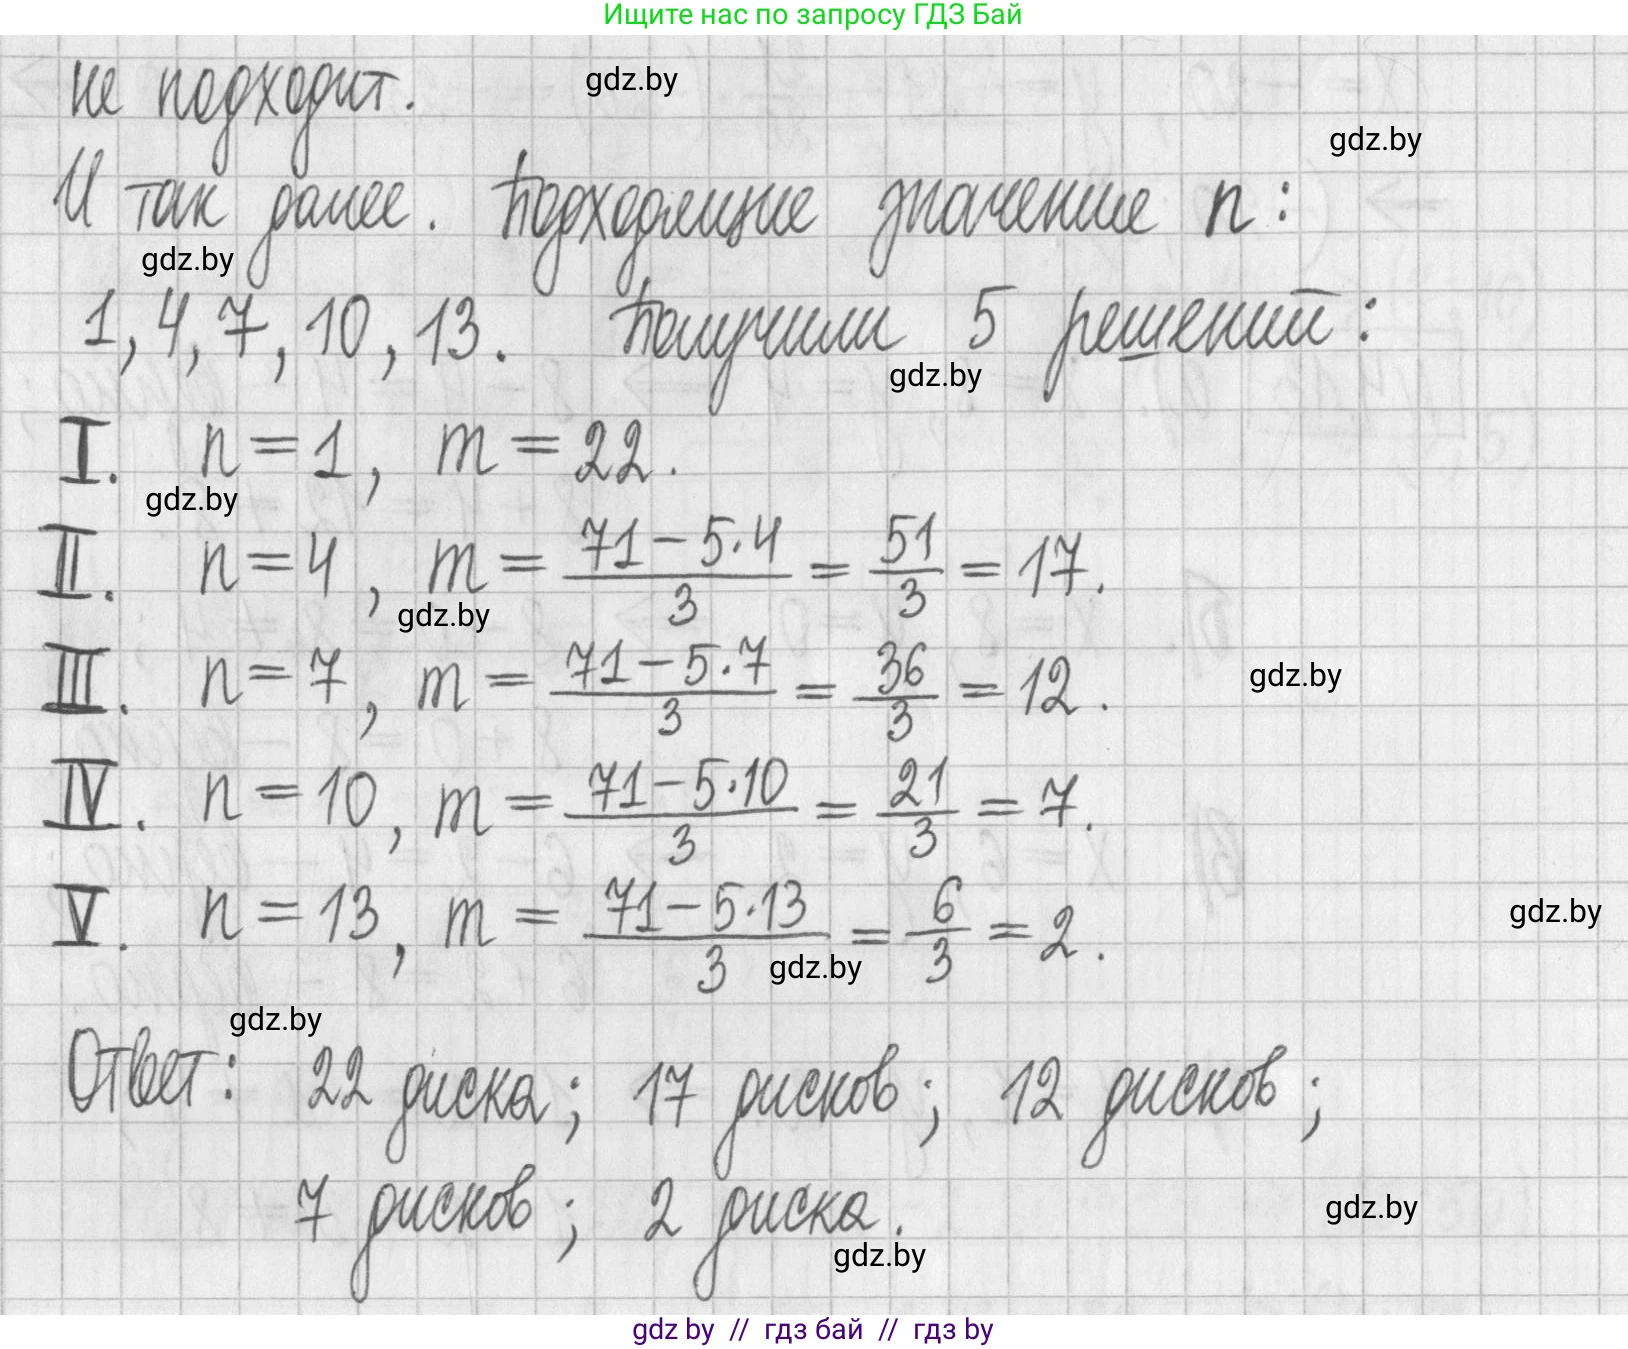 Ищите нас по запросу ГДЗ Бай
не подходит.
gdz.by
gdz.by
И так далее. Подходящие значение n:
gdz.by
1, 4, 7, 10, 13. Получили 5 решений:
gdz.by
I. n = 1, m = 22.
gdz.by
II. n = 4, m = 71 − 5·4 / 3 = 51 / 3 = 17.
gdz.by
III. n = 7, m = 71 − 5·7 / 3 = 36 / 3 = 12.
gdz.by
IV. n = 10, m = 71 − 5·10 / 3 = 21 / 3 = 7.
V. n = 13, m = 71 − 5·13 / 3 = 6 / 3 = 2.
gdz.by
gdz.by
gdz.by
Ответ: 22 диска; 17 дисков; 12 дисков;
7 дисков; 2 диска.
gdz.by
gdz.by
gdz by // гдз бай // гдз by